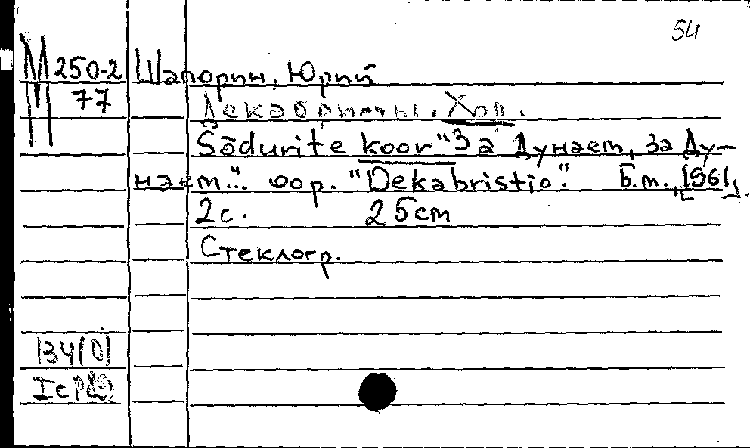 54
М 250-2 Шапорин, Юрий
77 Декабристы. Хор.
Sõdurite koor "За Дунаем, за Ду-
наем..." оор. "Dekabristid". Б.м., [1961].
2с. 25cm
Стеклогр.
134(0)